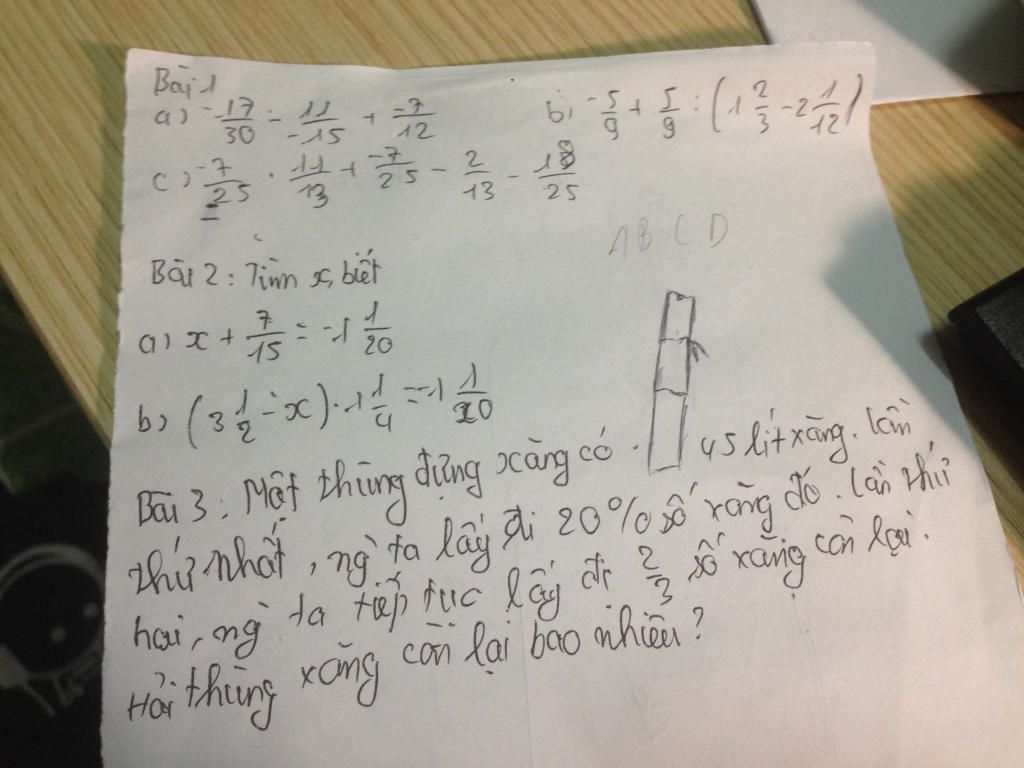 Bài 1
a) -17/30 - 11/-15 + -7/12 b) -5/9 + 5/9 : (1 2/3 - 2 1/12)
c) -7/25 . 11/13 + -7/25 - 2/13 - 18/25
A B C D
Bài 2: Tìm x, biết
a) x + 7/15 = -1 1/20
b) (3 1/2 - x) . 1 1/4 = -1 1/20
Bài 3: Một thùng đựng xăng có 45 lít xăng. lần
thứ nhất, ng` ta lấy đi 20% số xăng đó. lần thứ
hai, ng` ta tiếp tục lấy đi 2/3 số xăng còn lại.
Hỏi thùng xăng còn lại bao nhiêu?